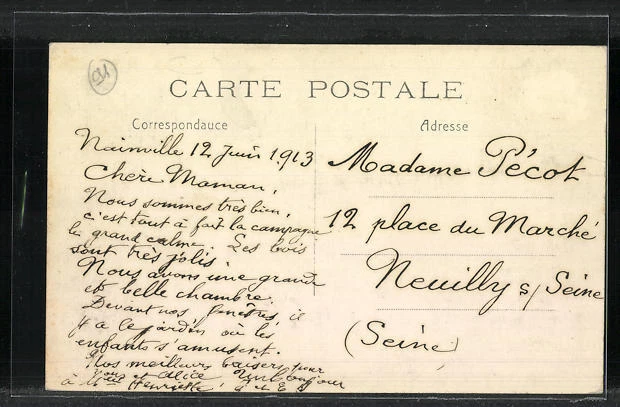 91
CARTE POSTALE
Correspondance
Adresse
Nainville 12 Juin 1913
Chère Maman,
Nous sommes très bien,
c'est tout à fait la campagne
le grand calme. Les bois
sont très jolis.
Nous avons une grande
et belle chambre.
Devant nos fenêtres il
y a le jardin où les
enfants s'amusent.
Nos meilleurs baisers pour
vous et Alice. Un bonjour
à Mme Henriette. G et E
Madame Pécot
12 place du Marché
Neuilly s/ Seine
(Seine)